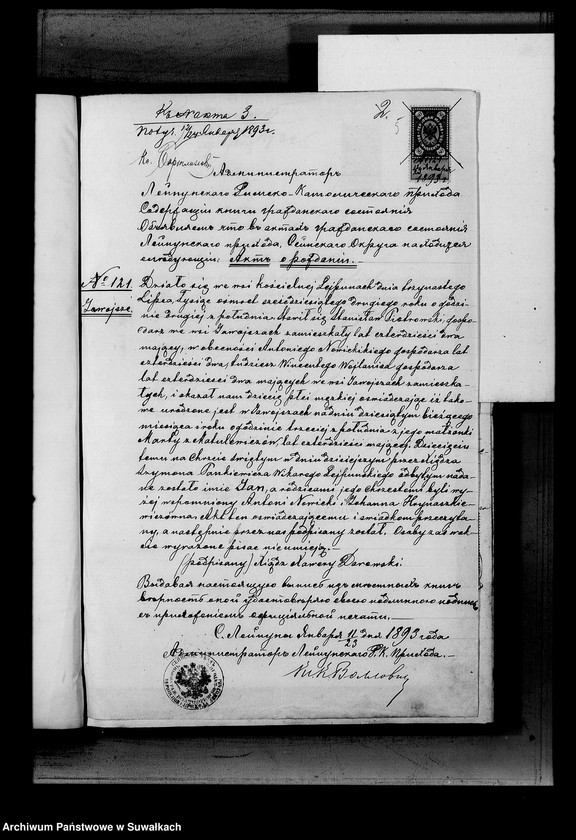 Къ акта 3.
2.
5
Nотуз. 12/24 Января 1893 г.
Кс.
1893 г.
Администраторъ
Лейпунскаго Римско-Католическаго прихода
Содержащій книги гражданскаго состоянія
Объявляетъ что въ актахъ гражданскаго состоянія
Лейпунскаго прихода, Сейнскаго Округа находится
слѣдующій: Актъ о рожденіи.
№ 121.
Jawojsze.
Działo się we wsi kościelnej Lejpunach dnia trzynastego
Lipca, tysiąc ośmset sześćdziesiątego drugiego roku o godzi-
nie drugiej z południa. Stawił się Stanisław Piotrowski, gospo-
darz we wsi Jawojszach zamieszkały, lat czterdzieści dwa
mający, w obecności Antoniego Nowickiego gospodarza lat
czterdzieści dwa, tudzież Wincentego Wojtanisa gospodarza
lat czterdzieści dwa mających we wsi Jawojszach zamieszka-
łych, i okazał nam dziecię płci męzkiej oświadczając iż tako-
we urodzone jest w Jawojszach na dniu dziesiątym bieżącego
miesiąca i roku o godzinie trzeciej z południa z jego małżonki
Marty z Matulewiczów, lat czterdzieści mającej. Dziecięciu
temu na Chrzcie świętym w dniu dzisiejszym przez księdza
Szymona Pankiewicza Wikarego Lejpuńskiego odbytym nada-
ne zostało imie Jan, a rodzicami jego Chrzestnemi byli wy-
żej wspomniony Antoni Nowicki i Johanna Hrynaszkie-
wiczówna. Akt ten oświadczającemu i świadkom przeczyta-
ny, a następnie przez nas podpisany został. Osoby zaś w ak-
cie wyrażone pisać nieumieją.
(podpisany) Ksiądz Xawery Darewski.
Выдавая настоящую выпись изъ метическихъ книгъ
вѣрность оной удостовѣряю своею подлинною подписью
съ приложеніемъ оффиціальной печати.
С. Лейпуны Января 11/23 дня 1893 года
Администраторъ Лейпунскаго Р. К. Прихода.
Кс. К. Воллович
Archiwum Państwowe w Suwałkach